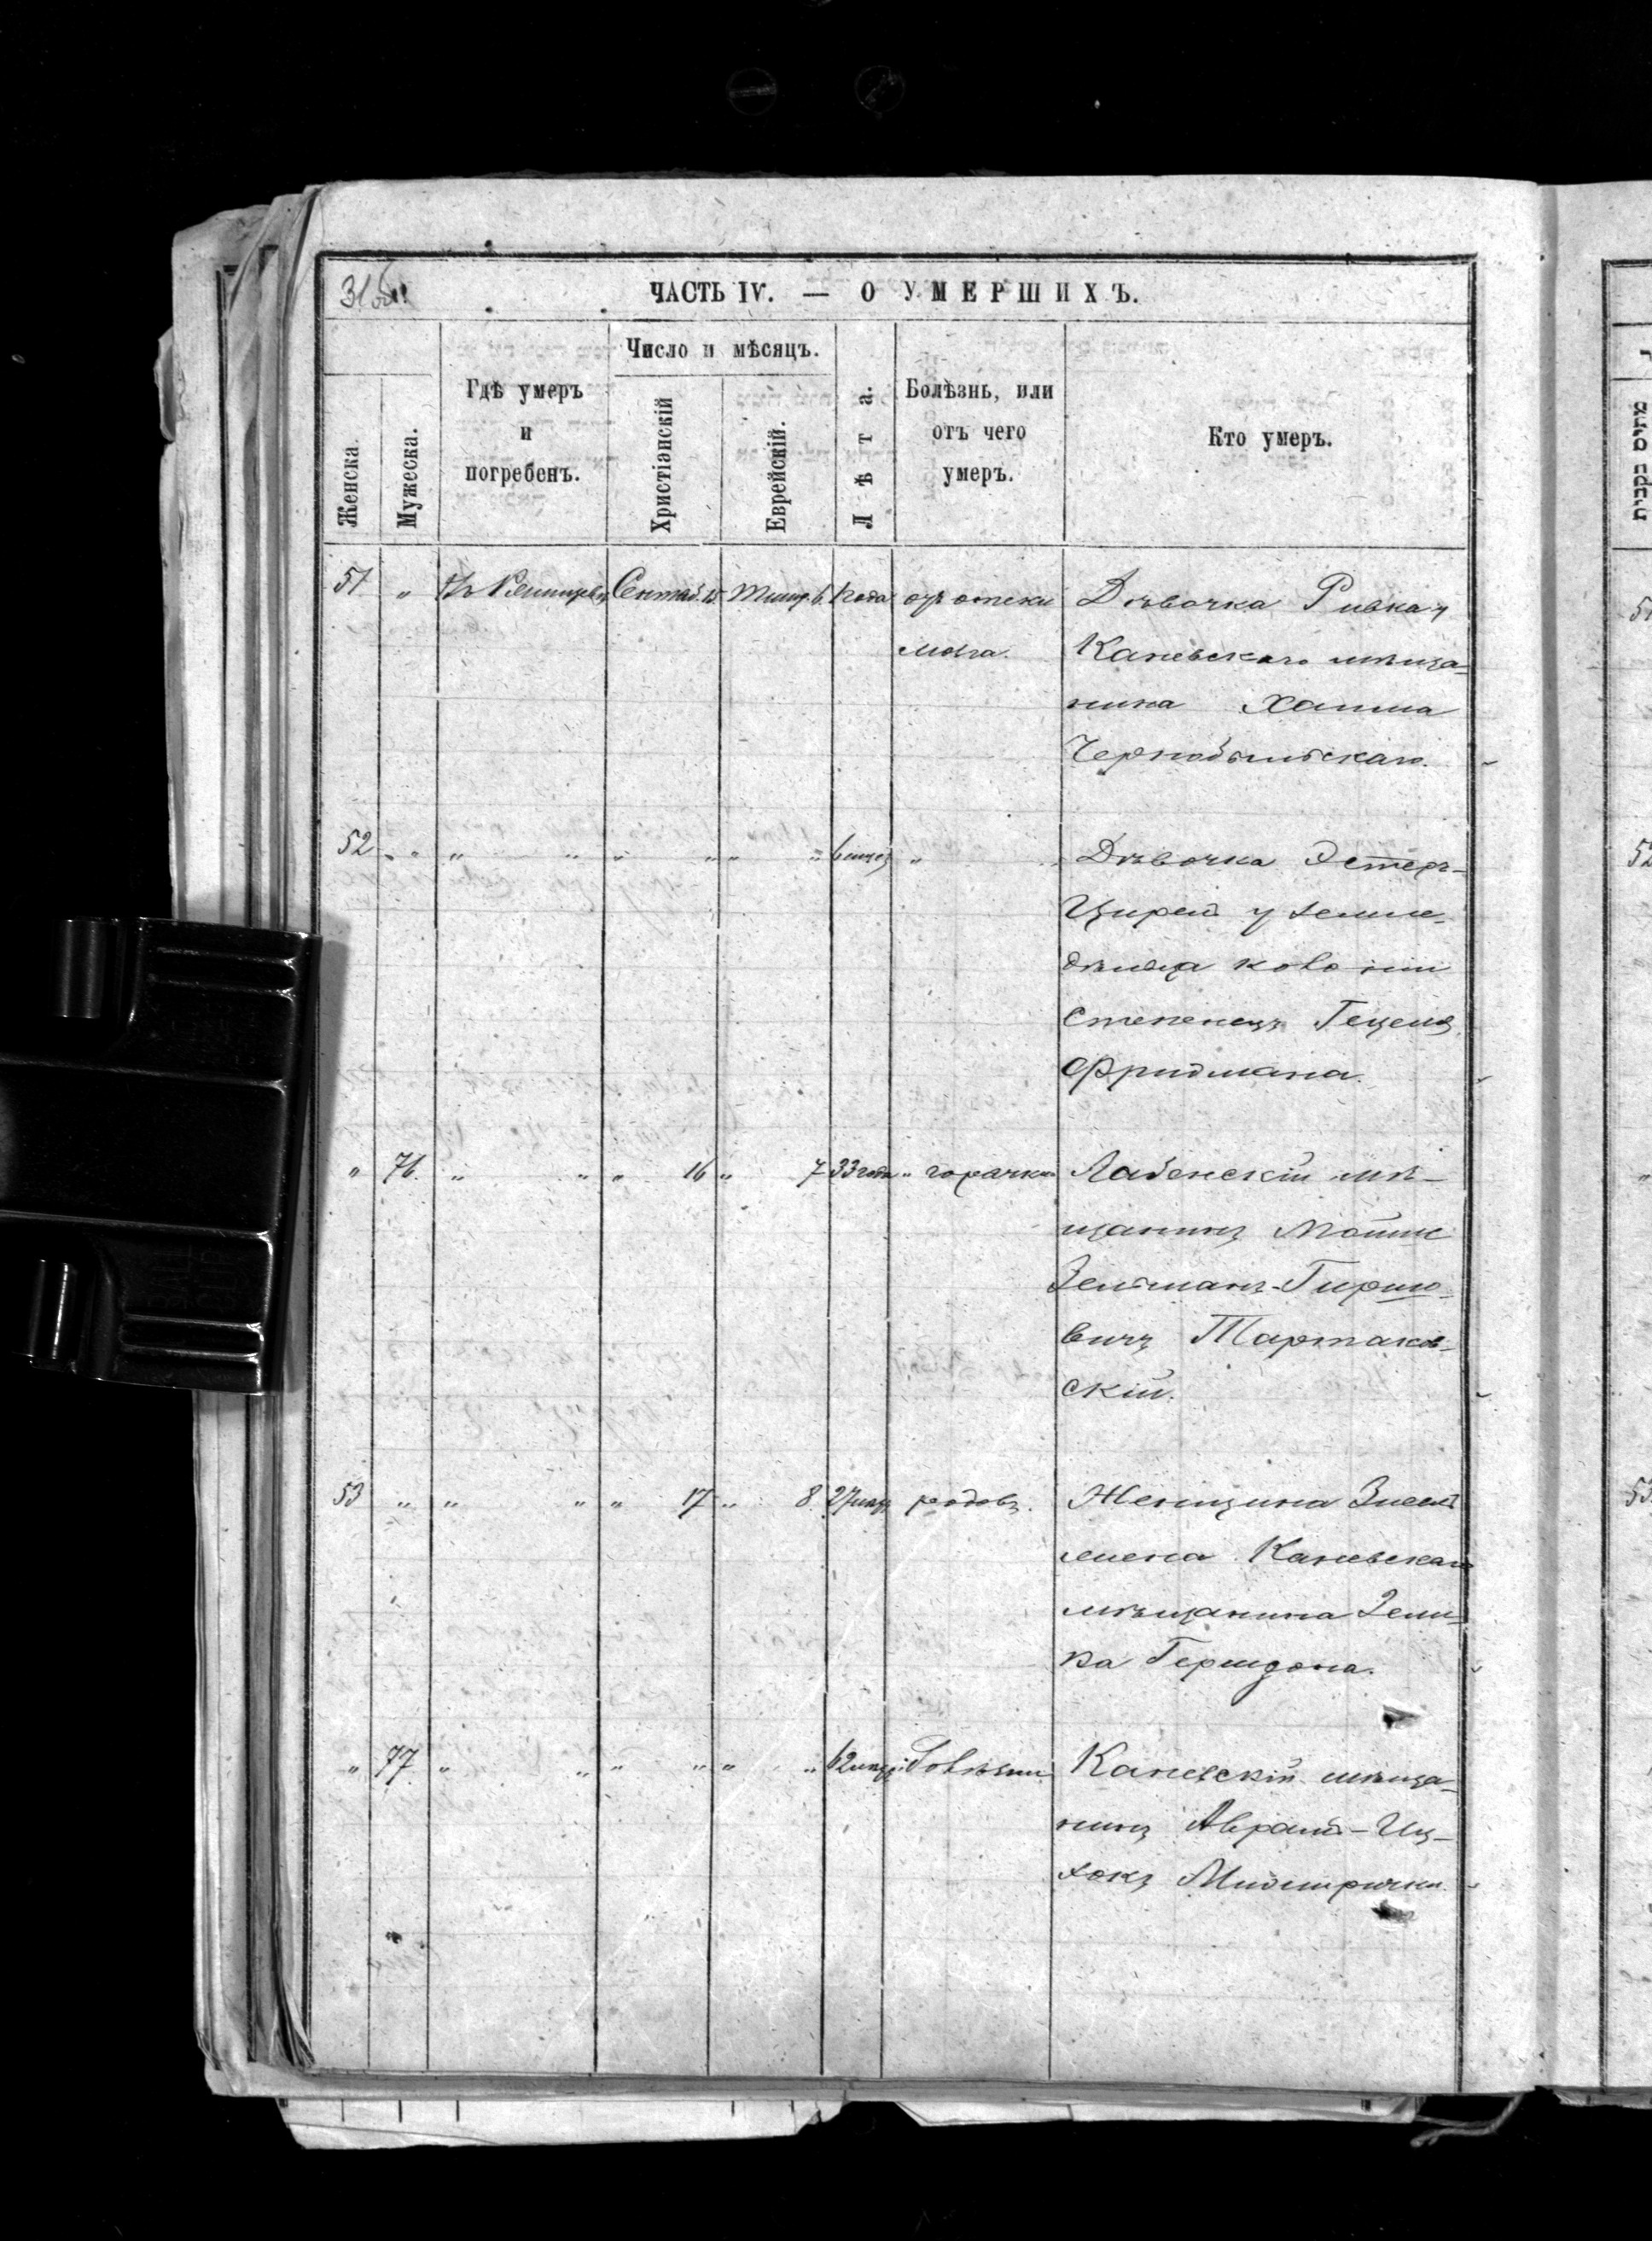 31об.
ЧАСТЬ IV. — О УМЕРШИХЪ.
Женска.
Мужеска.
Гдѣ умеръ
и
погребенъ.
Число и мѣсяцъ.
Христіанскій
Еврейскій.
Лѣта.
Болѣзнь, или
отъ чего
умеръ.
Кто умеръ.
51 " Сентяб. 15 Тишр. 6 года отъ отека
мозга.
Дѣвочка Ривка у
Каневскаго мѣща-
нина Хаима
Чернобыльскаго.
52 " " " " " " " 6 мѣсяц "
Дѣвочка Эстеръ-
у земле-
дѣльца колоніи
Степенецъ Гецеля
Фридмана.
" 76. " " " 16 " 7 33 года " горячки
мѣ-
щанинъ
Зельманъ-Гиршо-
вичъ Тартаков-
скій.
53 " " " " 17 " 8. 27 лѣтъ родовъ.
Женщина
жена Каневскаго
мѣщанина Зели-
ка
" 77. " " " " " " 62 лѣтъ
Каневскій мѣща-
нинъ Аврамъ-Иц-
хокъ